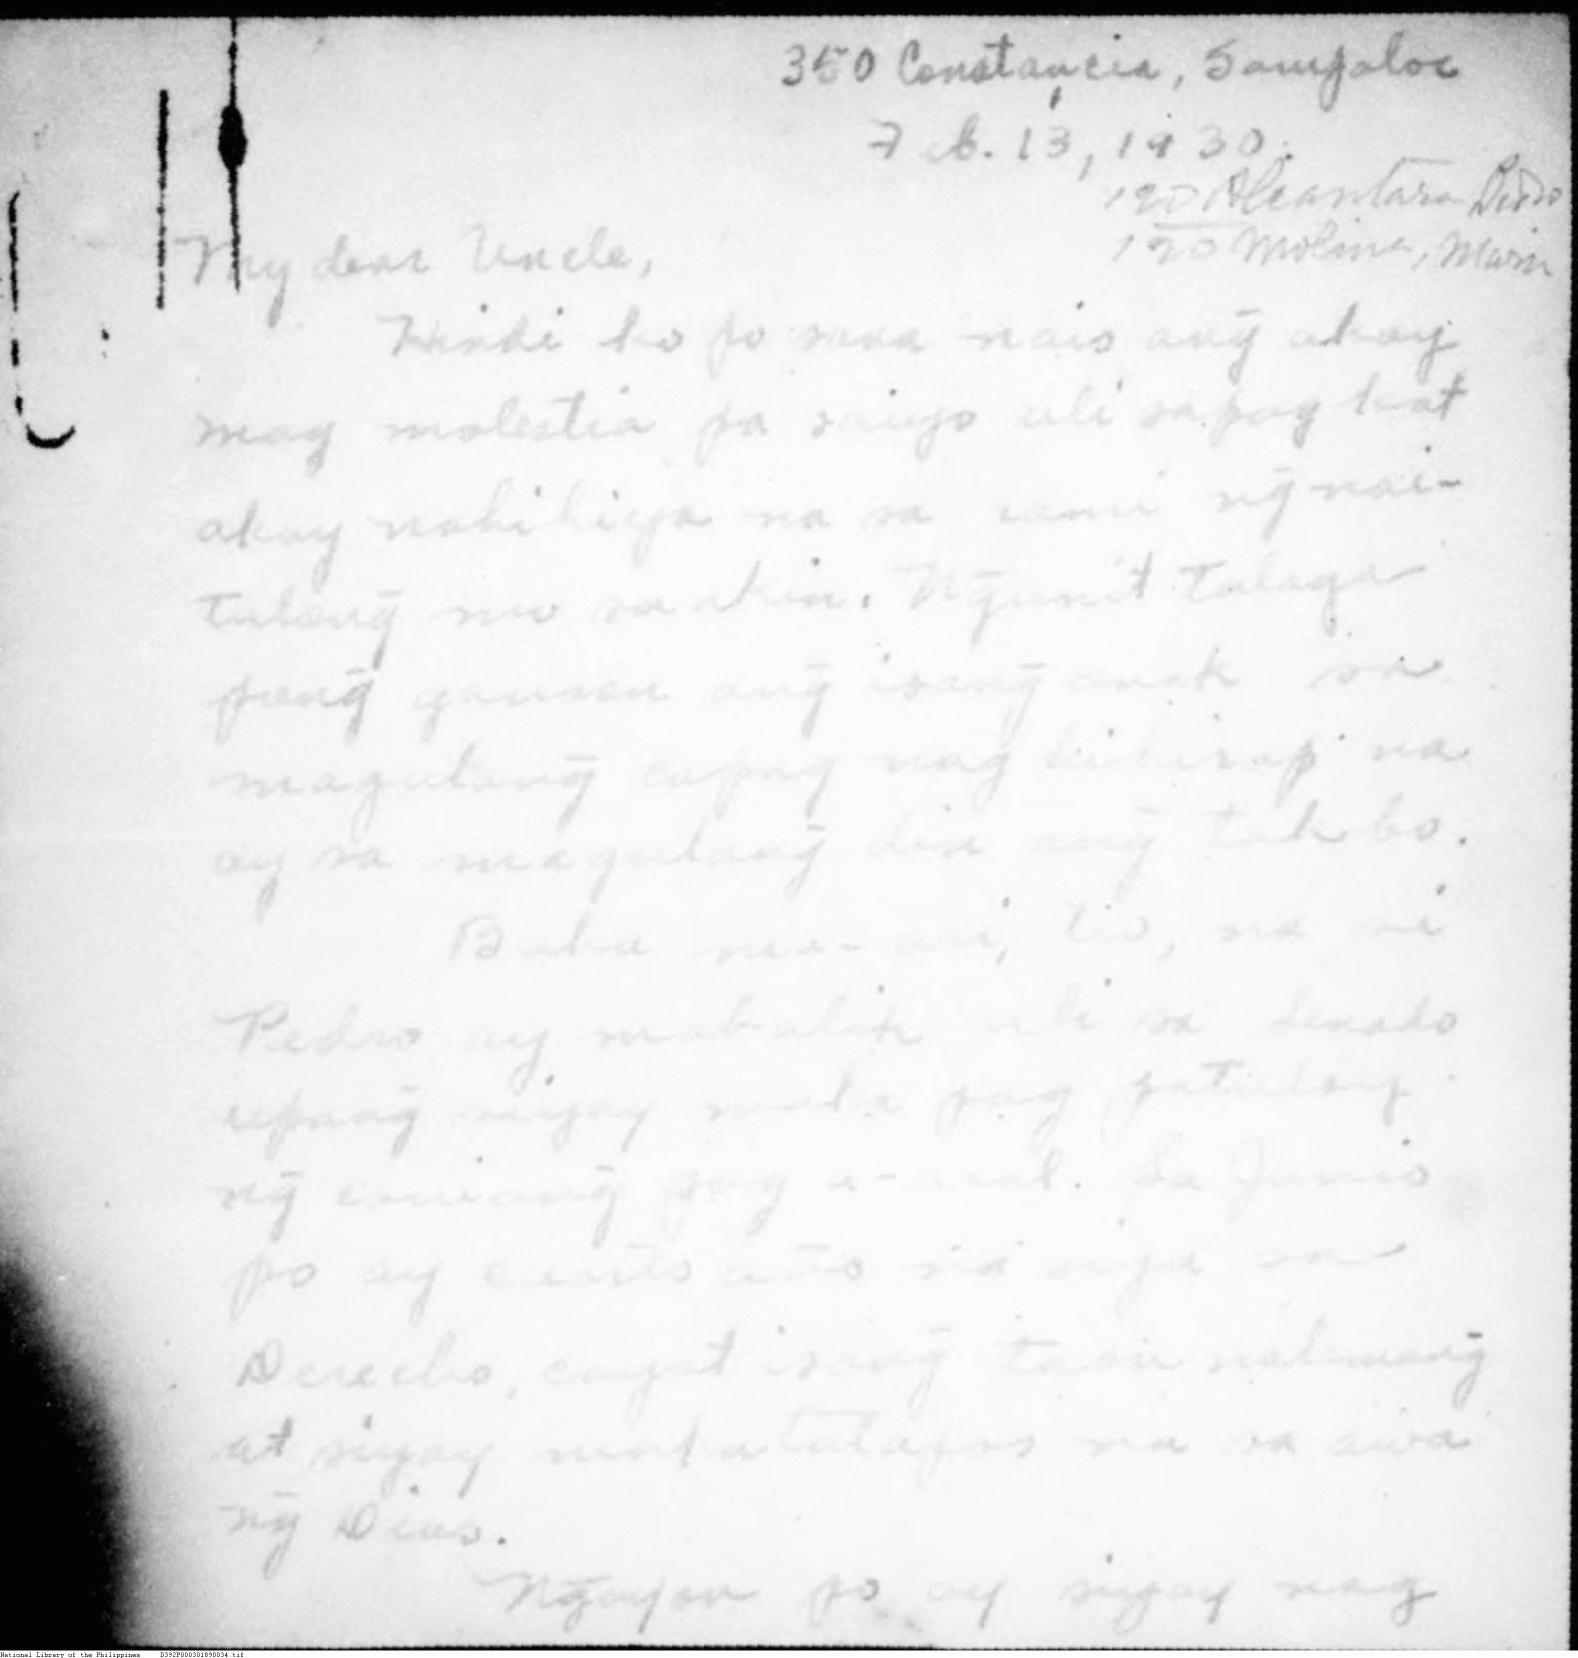 350 Constancia, Sampaloc
Feb. 13, 1930.
190 Alcantara Pedro
190 Molina, Maria
My dear Uncle,
Hindi ko po sana nais ang̃ akoy
mag molestia pa saiyo uli sapag kat
akoy nahihiya na sa rami ng̃ nai-
tulong̃ mo sa akin. Ng̃unit talaga
pong̃ ganoon ang̃ isang̃ anak sa
magulang̃ capag nag hihirap na
ay sa magulang̃ din ang̃ takbo.
Baka maa-ari, tio, na si
Pedro ay mabalik uli sa Senado
upang̃ siyay maka pag patuloy
ng̃ caniang̃ pag a-aral. Sa Junio
po ay cuarto año na siya sa
Derecho, cayat isang̃ taon nalamang̃
at siyay makatatapos na sa awa
ng̃ Dios.
Ng̃ayon po ay siyay nag
National Library of the Philippines D392P000301890034.tif